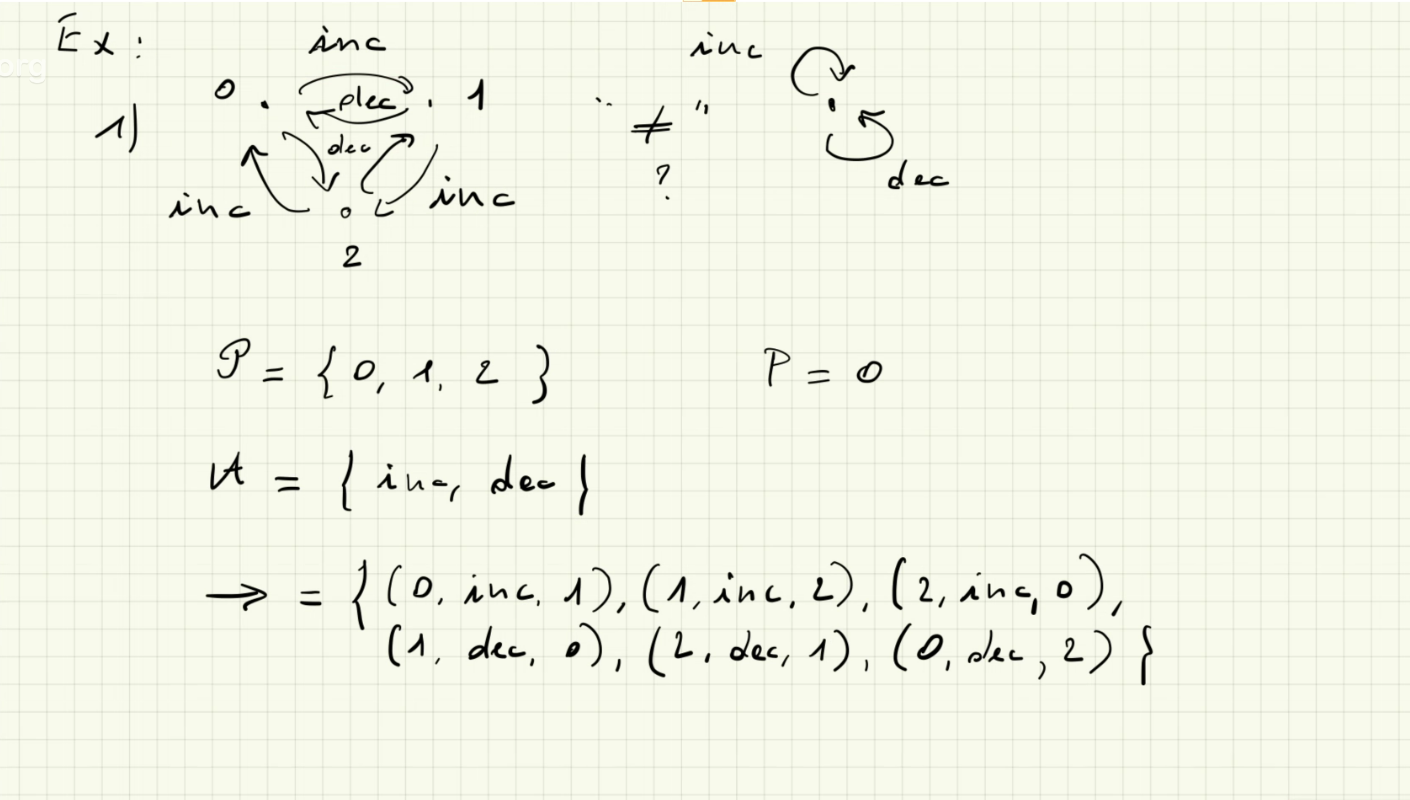 Ex:
inc
inc
org
0 . dec . 1 " ≠ "
1)
dec
?
dec
inc inc
2
P = { 0, 1, 2 } P = 0
A = { inc, dec }
→ = { (0, inc, 1), (1, inc, 2), (2, inc, 0),
(1, dec, 0), (2, dec, 1), (0, dec, 2) }